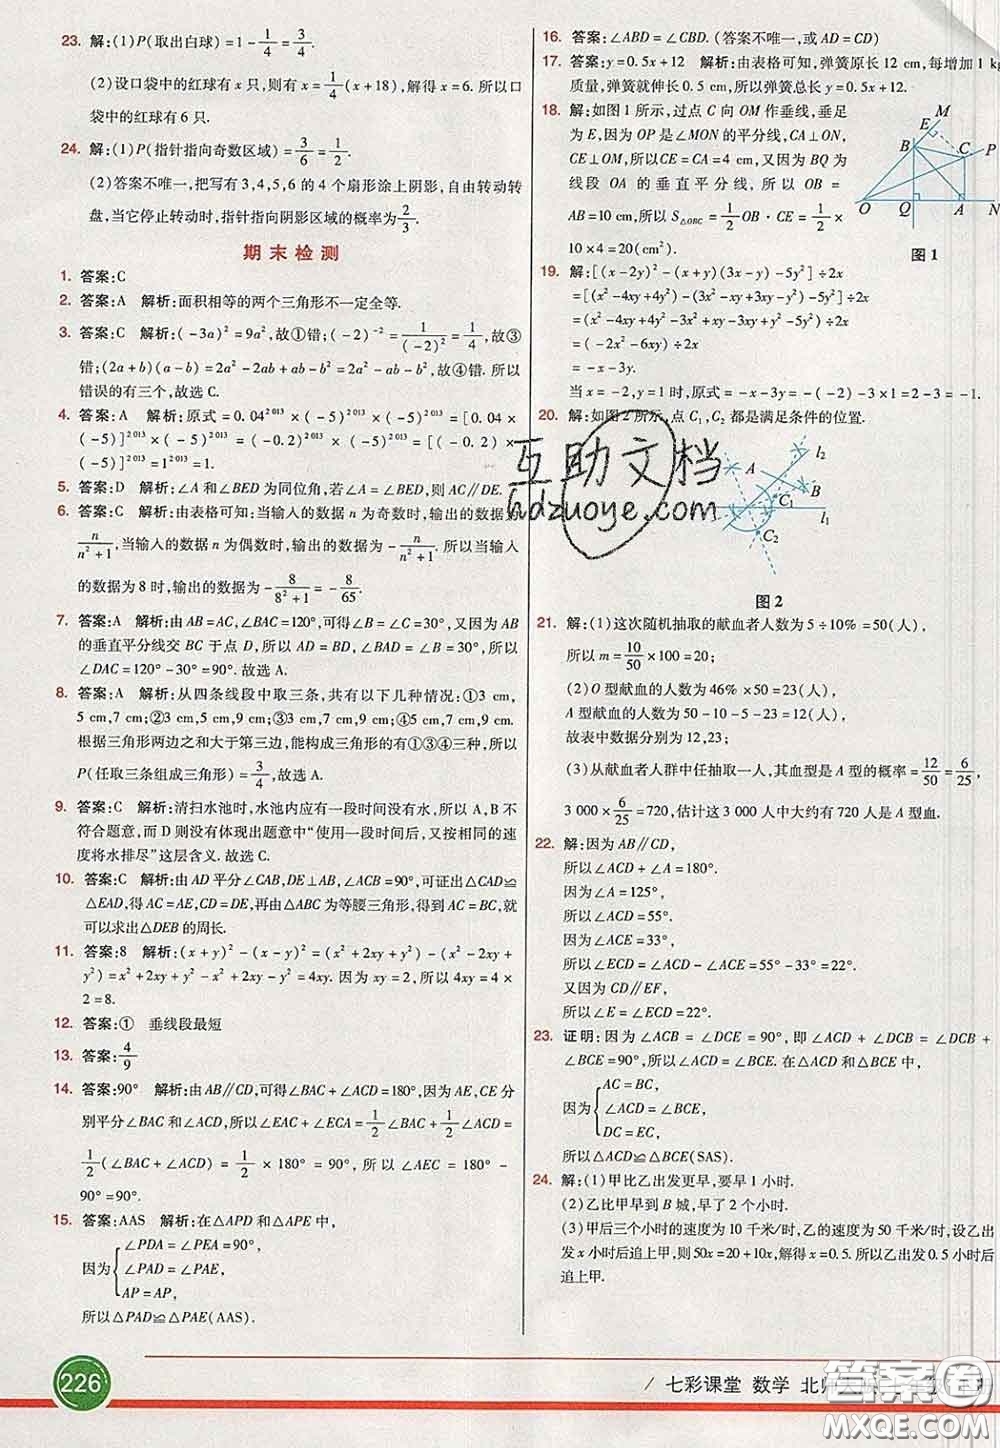 23. 解:(1)P(取出白球)=1-1/4=3/4.
(2)设口袋中的红球有 x 只,则有 x=1/4(x+18),解得 x=6.所以口
袋中的红球有 6 只.
24. 解:(1)P(指针指向奇数区域)=3/6=1/2.
(2)答案不唯一,把写有 3,4,5,6 的 4 个扇形涂上阴影,自由转动转
盘,当它停止转动时,指针指向阴影区域的概率为2/3.
期末检测
1. 答案:C
2. 答案:A 解析:面积相等的两个三角形不一定全等.
3. 答案:C 解析:(-3a)²=9a²,故①错;(-2)⁻²=1/(-2)²=1/4,故③
错;(2a+b)(a-b)=2a²-2ab+ab-b²=2a²-ab-b²,故④错.所以
错误的有三个,故选 C.
4. 答案:A 解析:原式=0.04²⁰¹³×(-5)²⁰¹³×(-5)²⁰¹³=[0.04×
(-5)]²⁰¹³×(-5)²⁰¹³=(-0.2)²⁰¹³×(-5)²⁰¹³=[(-0.2)×
(-5)]²⁰¹³=1²⁰¹³=1.
5. 答案:D 解析:∠A 和∠BED 为同位角,若∠A=∠BED,则 AC∥DE.
6. 答案:C 解析:由表格可知:当输入的数据 n 为奇数时,输出的数据为
n/(n²+1),当输入的数据 n 为偶数时,输出的数据为-n/(n²+1).所以当输入
的数据为 8 时,输出的数据为-8/(8²+1)=-8/65.
7. 答案:A 解析:由 AB=AC,∠BAC=120°,可得∠B=∠C=30°,又 AB
的垂直平分线交 BC 于点 D,所以∠BAD=∠B=30°,所以
∠DAC=120°-30°=90°.故选 A.
8. 答案:A 解析:从四条线段中取三条,共有以下几种情况:①3 cm,
5 cm,7 cm;②3 cm,5 cm,9 cm;③3 cm,7 cm,9 cm;④5 cm,7 cm,9 cm.
根据三角形两边之和大于第三边,能构成三角形的有①③④三种,所以
P(任取三条组成三角形)=3/4,故选 A.
9. 答案:C 解析:清扫水池时,水池内应有一段时间没有水,所以 A,B 不
符合题意,而 D 则没有体现出题意中“使用一段时间后,又按相同的速
度将水排尽”这层含义.故选 C.
10. 答案:C 解析:由 AD 平分∠CAB,DE⊥AB,∠C=90°,可证出△CAD≌
△EAD,得 AC=AE,CD=DE,再由△ABC 为等腰三角形,得 AC=BC,就
可以求出△DEB 的周长.
11. 答案:8 解析:(x+y)²-(x-y)²=(x²+2xy+y²)-(x²-2xy+
y²)=x²+2xy+y²-x²+2xy-y²=4xy.因为 xy=2,所以 4xy=4×
2=8.
12. 答案:① 垂线段最短
13. 答案:4/9
14. 答案:90° 解析:由 AB∥CD,可得∠BAC+∠ACD=180°,因为 AE,CE 分
别平分∠BAC 和∠ACD,所以∠EAC+∠ECA=1/2∠BAC+1/2∠ACD=
1/2(∠BAC+∠ACD)=1/2×180°=90°,所以∠AEC=180°-
90°=90°.
15. 答案:AAS 解析:在△APD 和△APE 中,
因为{∠PDA=∠PEA=90°,
∠PAD=∠PAE,
AP=AP,
所以△PAD≌△PAE(AAS)
16. 答案:∠ABD=∠CBD.(答案不唯一,或 AD=CD)
17. 答案:y=0.5x+12 解析:由表格可知,弹簧原长 12 cm,每增加 1 kg
质量,弹簧伸长 0.5 cm,所以弹簧总长 y=0.5x+12.
18. 解:如图 1 所示,过点 C 向 OM 作垂线,垂足
为 E,因为 OP 是∠MON 的平分线,CA⊥ON,
CE⊥OM,所以 CE=CA=4 cm,又因为 BQ 为
线段 OA 的垂直平分线,所以 OB=
AB=10 cm,所以 S△OBC=1/2OB·CE=1/2×
10×4=20(cm²).
M
E
B
C
P
O
Q
A
N
图 1
19. 解:[(x-2y)²-(x+y)(3x-y)-5y²]÷2x
=[(x²-4xy+4y²)-(3x²-xy+3xy-y²)-5y²]÷2x
=(x²-4xy+4y²-3x²+xy-3xy+y²-5y²)÷2x
=(-2x²-6xy)÷2x
=-x-3y.
当 x=-2,y=1 时,原式=-x-3y=-(-2)-3×1=2-3=-1.
20. 解:如图 2 所示,点 C₁,C₂ 都是满足条件的位置.
A
l₂
B
C₁
l₁
C₂
图 2
21. 解:(1)这次随机抽取的献血者人数为 5÷10%=50(人),
所以 m=10/50×100=20;
(2)O 型献血的人数为 46%×50=23(人),
A 型献血的人数为 50-10-5-23=12(人),
故表中数据分别为 12,23;
(3)从献血者人群中任抽取一人,其血型是 A 型的概率=12/50=6/25,
3 000×6/25=720,估计这 3 000 人中大约有 720 人是 A 型血.
22. 解:因为 AB∥CD,
所以∠ACD+∠A=180°.
因为∠A=125°,
所以∠ACD=55°.
因为∠ACE=33°,
所以∠ECD=∠ACD-∠ACE=55°-33°=22°.
又因为 CD∥EF,
所以∠E=∠ECD=22°.
23. 证明:因为∠ACB=∠DCE=90°,即∠ACD+∠DCB=∠DCB+
∠BCE=90°,所以∠ACD=∠BCE.在△ACD和△BCE 中,
因为{AC=BC,
∠ACD=∠BCE,
DC=EC,
所以△ACD≌△BCE(SAS).
24. 解:(1)甲比乙出发更早,要早 1 小时.
(2)乙比甲早到 B 城,早了 2 个小时.
(3)甲后三个小时的速度为 10 千米/时,乙的速度为 50 千米/时,设乙出
发 x 小时后追上甲,则 50x=20+10x,解得 x=0.5.所以乙出发 0.5 小时后
追上甲.
互助文档
hdzuoye.com
226
/ 七彩课堂 数学 北师
答案卷
MXQE.COM